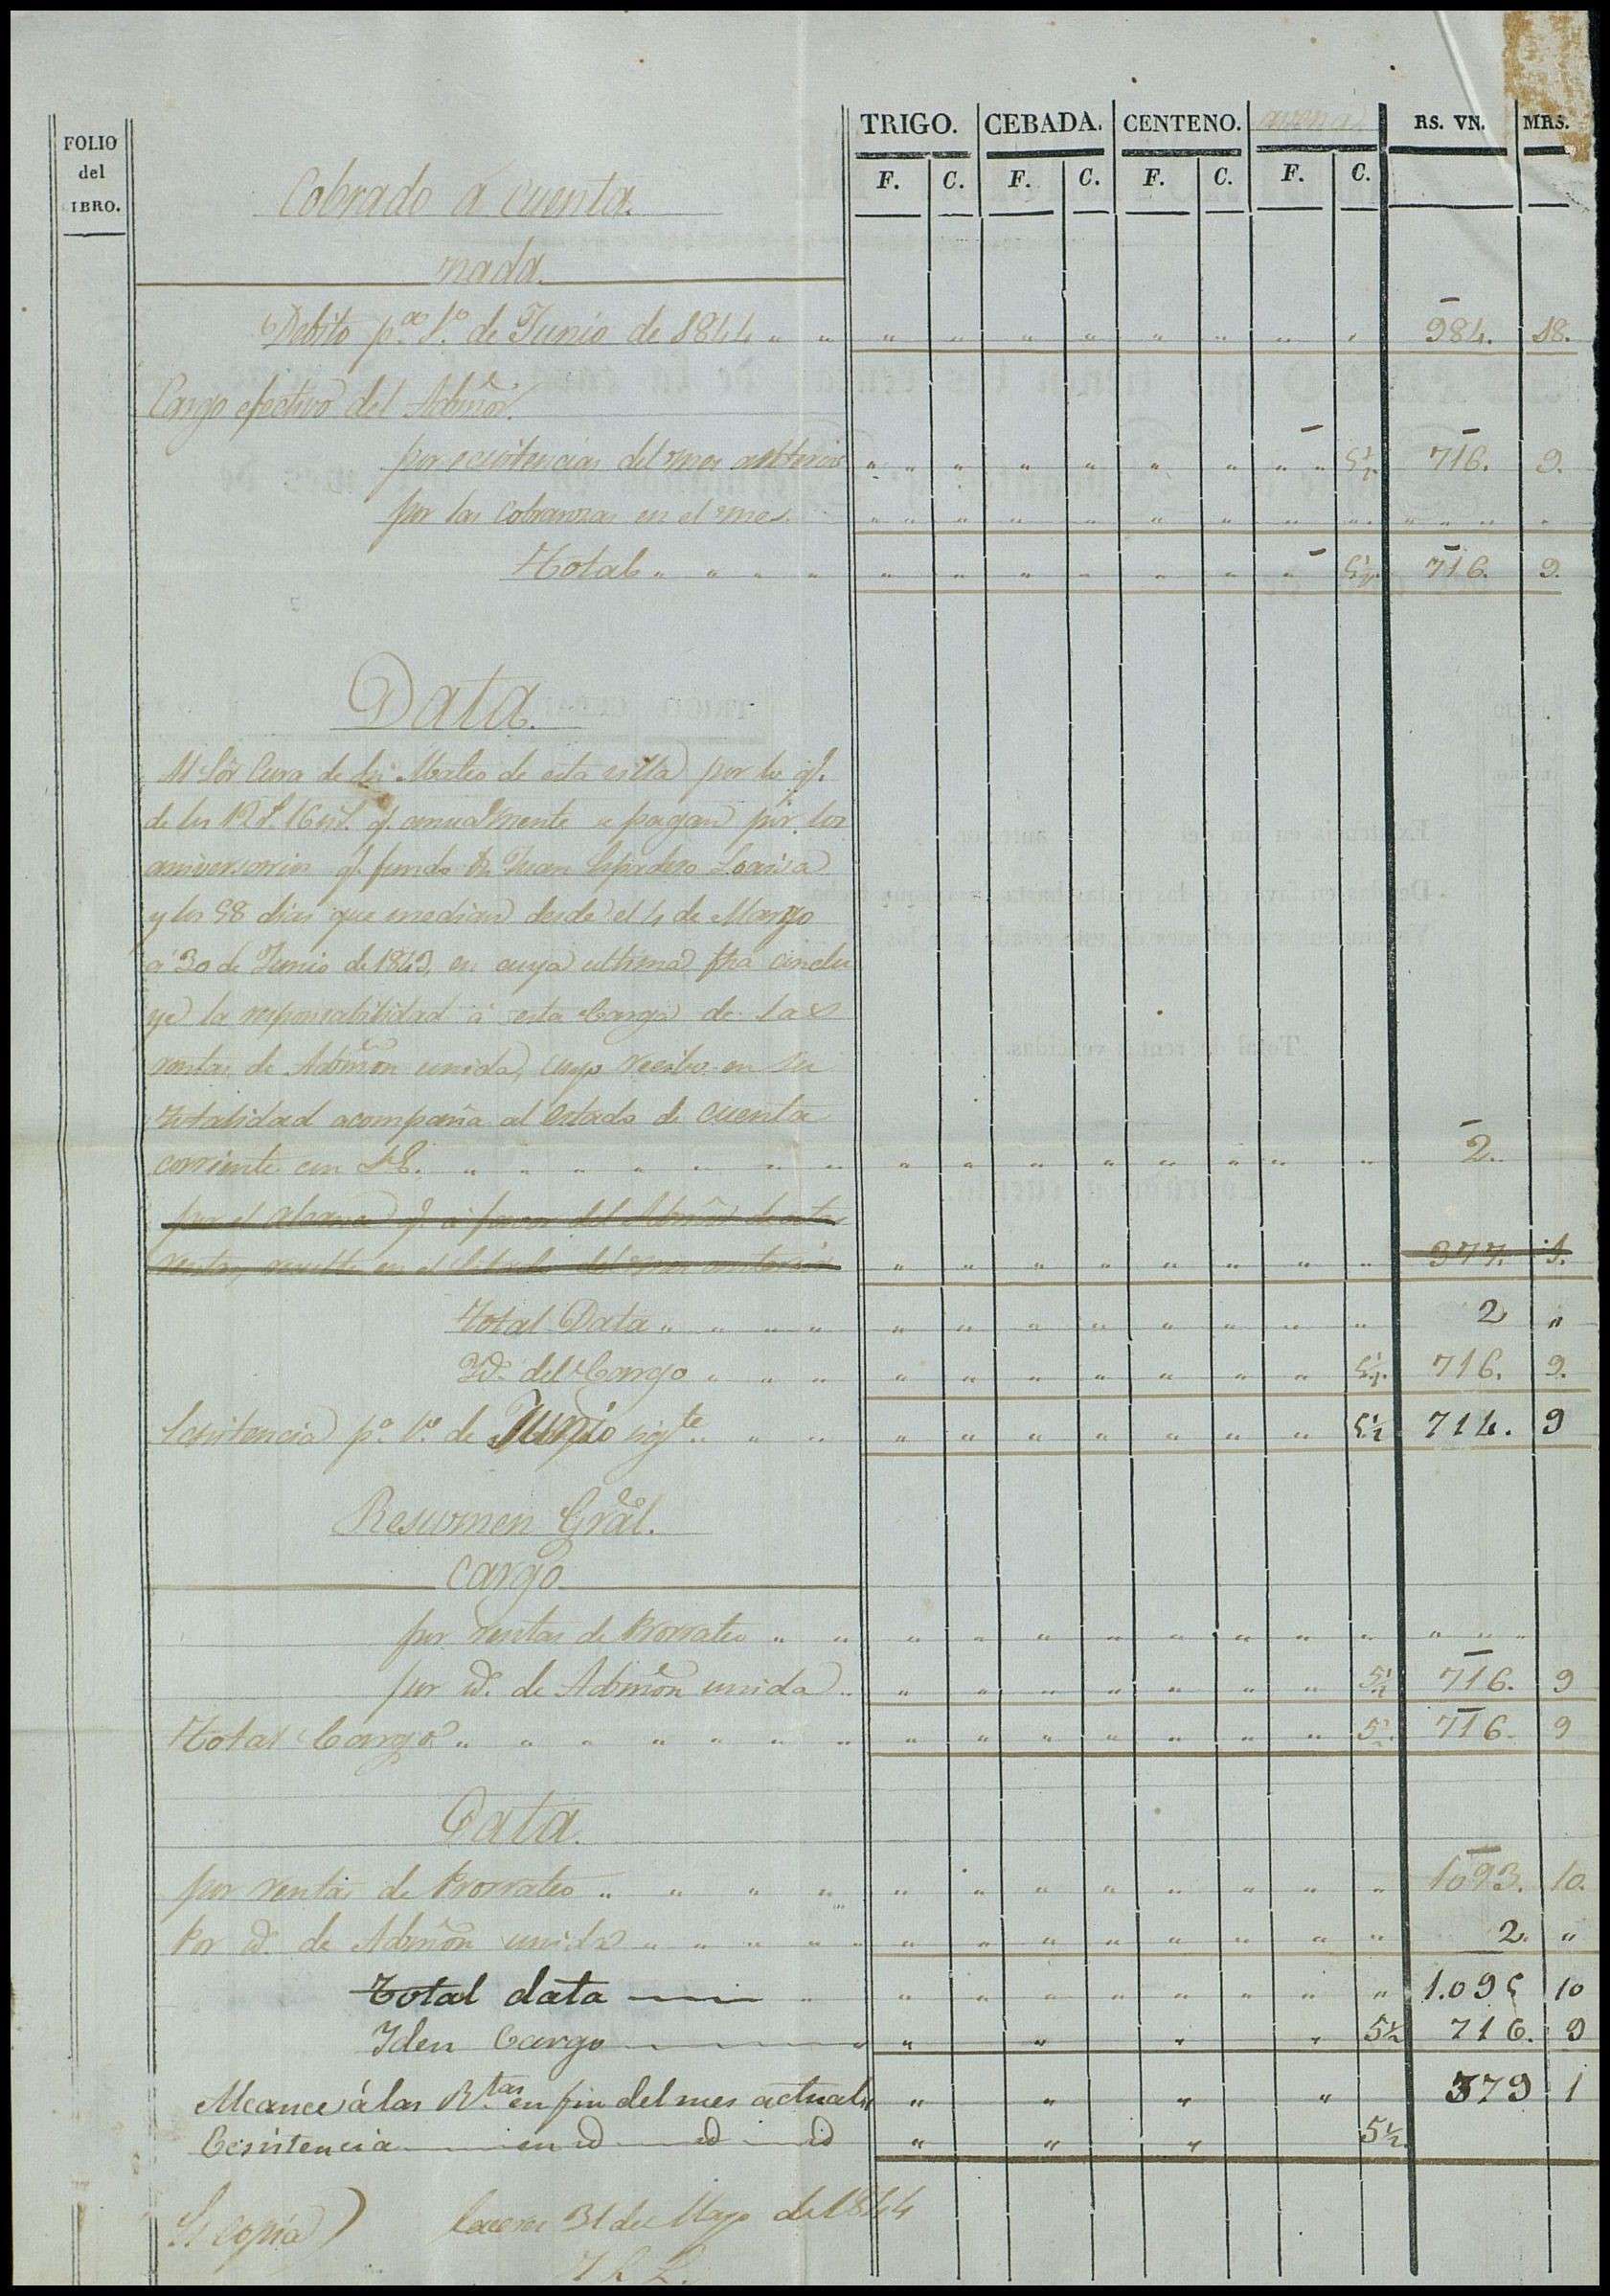 FOLIO del IBRO.
TRIGO. CEBADA. CENTENO. avena RS. VN. MRS.
F. C. F. C. F. C. F. C.
Cobrado á cuenta.
nada.
Debito p.ª 1.º de Junio de 1844 " " " " " " " " " " 984. 18.
Cargo efectivo del Admõr.
por ecsistencias del mes anterior " " " " " " " " " 5½ 716. 9.
por las cobranzas en el mes. " " " " " " " " " " " " " "
Total " " " " " " " " " " " 5½ 716. 9.
Data.
Al Sõr Cura de Sn. Mateo de esta villa por lo q.
de los R.s 16 m.s q. anualmente se pagan por los
aniversarios q. fundo Dn. Juan Espadero Loaisa
y los 58 dias que median desde el 4 de Marzo
á 30 de Junio de 1843, en cuya ultima fha conclu
ye la responsabilidad á esta Carga de las
rentas de Admõn unida, cuyo recibo en su
totalidad acompaña al estado de cuenta
corriente con " " " " " " " " " " " " " " 2.
por el alcance q. á favor del Admõr de estas
rentas, resulta en el Estado del mes anterior " " " " " " " " 377. 1.
Total Data " " " " " " " " " " " " 2 "
Yd. del Cargo " " " " " " " " " " 5½. 716. 9.
Ecsistencia p.ª 1.º de Junio sig.te " " " " " " " " " " 5½ 714. 9
Resumen Gral.
Cargo
por rentas de Prorrateo " " " " " " " " " " " " "
por id. de Admõn unida " " " " " " " " 5½ 716. 9
Total Cargo " " " " " " " " " " " " " " 5½ 716. 9
Data.
por rentas de Prorrateo " " " " " " " " " " " " 1093. 10.
Por id. de Admõn unida " " " " " " " " " " " " " 2. "
Total data " " " " " " " " " 1.095 10
Iden Cargo " " " " 5½ 716. 9
Alcance á las R.tas en fin del mes actual " " " " 379 1
Ecsistencia en id id id " " " 5½.
Es copia) Caceres 31 de Mayo de 1844